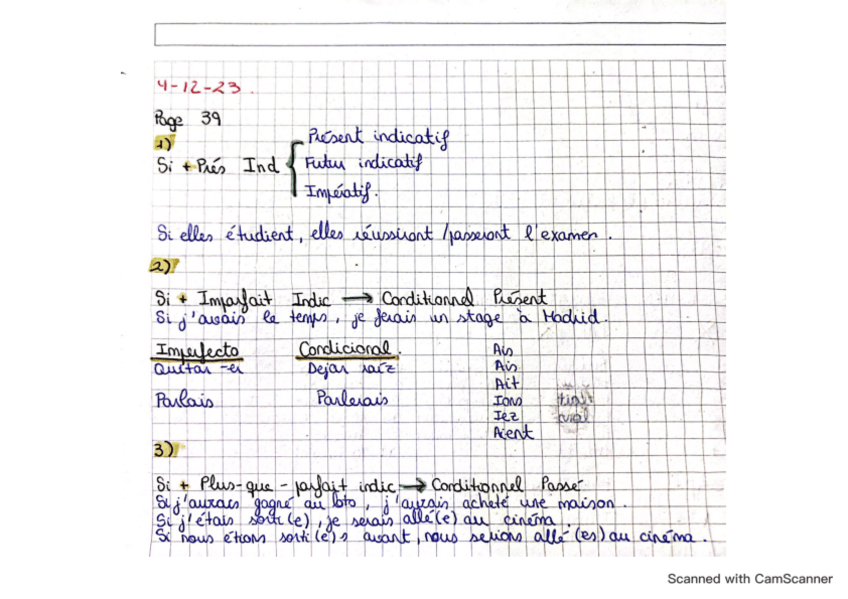 4-12-23.
Page 39
1)
Si + Prés Ind
Présent indicatif
Futur indicatif
Impératif.
Si elles étudient, elles réussiront /passeront l'examen.
2)
Si + Imparfait Indic → Conditionnel Présent
Si j'avais le temps, je ferais un stage à Madrid.
Imperfecto Condicional.
Quitar -er Dejar raíz
Parlais Parlerais
Ais
Ais
Ait
Ions
Iez
Aient
3)
Si + Plus-que-parfait indic → Conditionnel Passé
Si j'aurais gagné au loto, j'aurais acheté une maison.
Si j'étais sorti(e), je serais allé(e) au cinéma.
Si nous étions sorti(e)s avant, nous serions allé(es) au cinéma.
Scanned with CamScanner